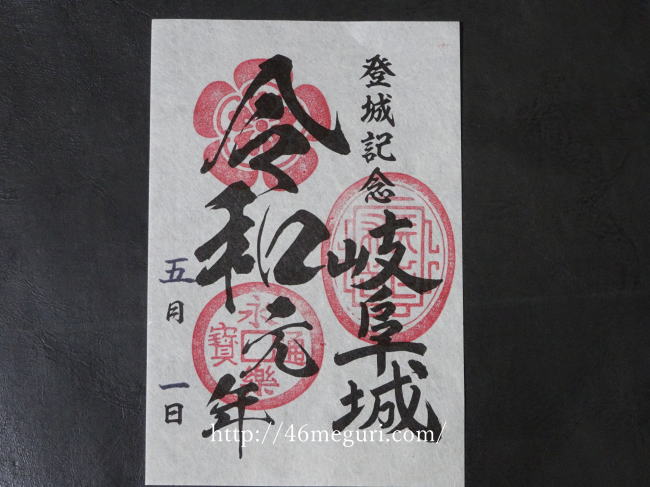 登城記念
岐阜城
令和元年
五月一日
永樂通寶
http://46meguri.com/